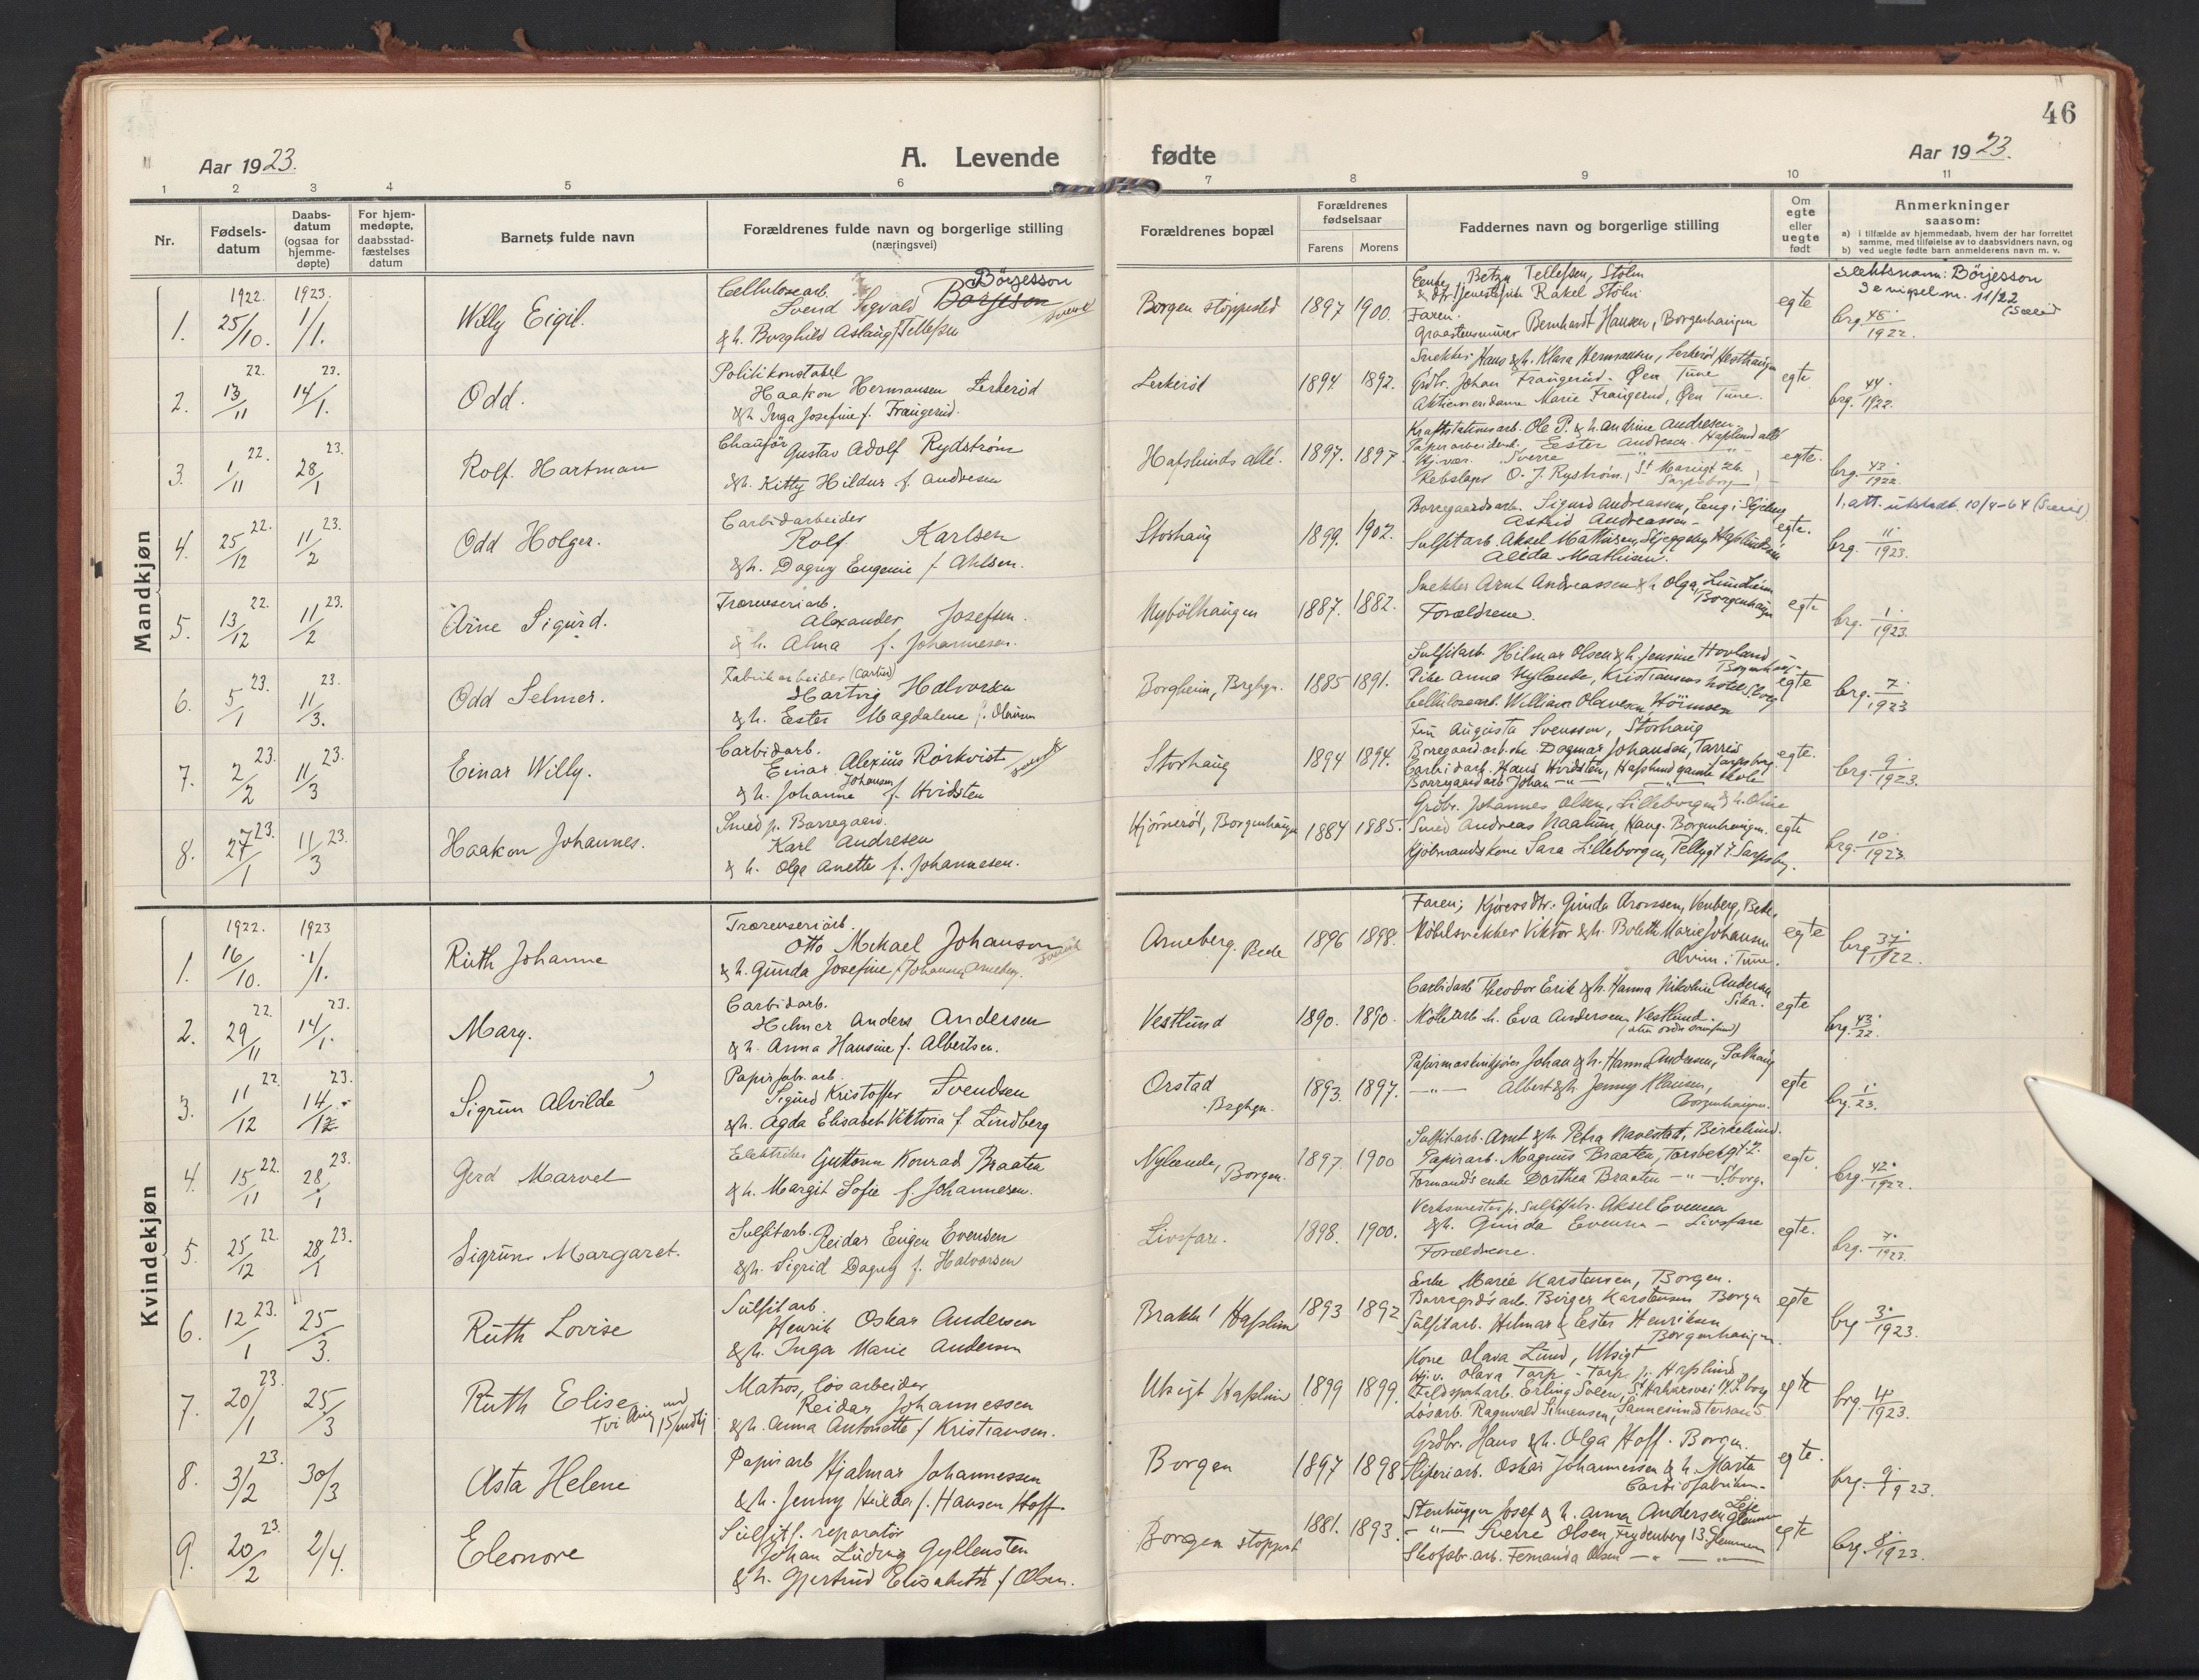 46
Aar 1923.
A. Levende fødte
Aar 1923.
1 2 3 4 5 6 7 8 9 10 11
Nr.
Fødsels-
datum
Daabs-
datum
(ogsaa for
hjemme-
døpte)
For hjem-
medøpte,
daabsstad-
fæstelses
datum
Barnets fulde navn
Forældrenes fulde navn og borgerlige stilling
(næringsvei)
Forældrenes bopæl
Forældrenes
fødselsaar
Farens Morens
Faddernes navn og borgerlige stilling
Om
egte
eller
uegte
født
Anmerkninger
saasom:
a) i tilfælde av hjemmedaab, hvem der har forrettet
samme, med tilføielse av to daabsvidners navn, og
b) ved uegte fødte barn anmelderens navn m. v.
Mandkjøn
1922. 1923.
1. 25/10. 1/1. Willy Eigil.
Cellulosearb.
Svend Sigvald Borjeson Börjesson
& h. Borghild Aslaug f. Tellefsen
Borgen stoppested 1897 1900.
Enke Betzy Tellefsen, Stölin
Rakel Stölin
Faren.
Graastensmurer Bernhardt Hansen, Borgenhaugen
egte
Slektsnavn: Börjesson
brg. 45/1922.
2. 13/11 22. 14/1. 23. Odd.
Politikonstabel
Haakon Hermansen Lerkerød
& h. Inga Josefine f. Frangerud.
Lerkerød 1894 1892.
Snekker Hans & h. Klara Hermansen, Lerkerød
Grdbr. Johan Frangerud. Øen Tune
Marie Frangerud, Øen Tune.
egte
brg. 44/1922.
3. 1/11 22. 28/1 23. Rolf. Hartman
Chauför Gustav Adolf Rydström
& h. Kitty Hildur f. Andresen
Hafslunds allé. 1897. 1897
Kraftstationsarb. Ole P. & h. Andrine Andresen
Ester Andresen. Hafslund allé
Sverre
Rebslager O. J. Ryström, St Mariegt 26. Sarpsborg
egte.
brg. 43/1922.
4. 25/12 22. 11/2 23. Odd Holger.
Carbidarbeider
Rolf Karlsen
& h. Dagny Eugenie f. Ahlsen.
Storhaug 1899. 1902.
Borregaardsarb. Sigurd Andreassen, Eng i Skjeberg
Astrid Andreassen
Sulfitarb. Aksel Mathisen, Skjeggeby
Alida Mathisen.
egte.
1. att. utstedt 10/4-64
brg. 11/1923.
5. 13/12 22. 11/2 23. Arne Sigurd.
Træsenseriarb.
Alexander Josefsen.
& h. Alma f. Johannesen.
Nybölhaugen 1887. 1882.
Snekker Arnt Andreassen & h. Olga, Lundheim
Borgenhaugen
Forældrene.
egte
brg. 1/1923.
6. 5/1 23. 11/3. 23. Odd Selmer.
Fabrikarbeider (Carbid)
Hartvig Halvorsen
& h. Ester Magdalene f. Olavesen
Borgheim, Brghgn. 1885 1891.
Sulfitarb. Hilmar Olsen & h. Jensine Hovland
Pike Anna Nylænde, Kristiansens hotel S.borg
Cellulosearb. William Olavesen
egte
brg. 7/1923
7. 2/2 23. 11/3 23. Einar Willy.
Carbidarb.
Einar Alexius Rörkvist
& h. Johanne Johansen f. Hvidsten
Storhaug 1894 1894.
Fru Augusta Svensson, Storhaug
Borregaardarb.ske Dagmar Johansen, Tarris Sarpsborg
Carbidarb. Hans Hvidsten, Hafslund gamle skole
Borregaardarb Johan
egte.
brg. 9/1923.
8. 27/1 23. 11/3 23. Haakon Johannes.
Smed p. Borregaard.
Karl Andresen
& h. Olga Anette f. Johannesen.
Hjørnerød, Borgenhaugen 1884 1885.
Grdbr. Johannes Olsen, Lilleborgen & h. Oline
Smed Andreas Naalum, Haug. Borgenhaugen.
Kjöbmandskone Sara Lilleborgen, Pellygt 7. Sarpsborg.
egte
brg. 10/1923.
Kvindekjøn
1922. 1923
1. 16/10. 1/1. Ruth Johanne
Træsenseriarb.
Otto Mikael Johanson
& h. Gunda Josefine f. Johansen Arneberg.
Arneberg. Bede 1896 1898.
Faren; Kjøresdtr. Gunda Aronsen, Venberg, Bede.
Möbelsnekker Viktor & h. Boletth Marie Johansen
Alvim i Tune.
egte
brg 37/1922.
2. 29/11 22. 14/1. 23. Mary.
Carbidarb.
Helmer Anders Andersen
& h. Anna Hansine f. Albertsen.
Vestlund 1890. 1890.
Carbidarb Theodor Erik & h. Hanna Nikoline Andersen
Sika.
MölleArb h. Eva Andersen, Vestlund.
egte
brg. 43/22.
3. 11/12 22. 14/12 23. Sigrun Alvilde
Papirfabr.arb.
Sigurd Kristoffer Svendsen
& h. Agda Elisabeth Viktoria f Lindberg
Orstad
Brghgn. 1893. 1897.
Papirmaskinkjører Johan & h. Hanna Andersen, Solhaug
-"- Albert & h. Jenny Klausen,
Borgenhaugen.
egte
brg. 1/23.
4. 15/11 22. 28/1 23. Gerd Marvel
Elektriker Guttorm Konrad Braaten
& h. Margit Sofie f. Johannesen.
Nylænde,
Borgen. 1897. 1900
Sulfitarb. Arnt & h. Petra Navestad, Birkelund.
Papirarb. Magnus Braaten, Torsbekgt 2.
Formands enke Dorthea Braaten -"- S.borg.
egte.
brg. 42/1922.
5. 25/12 22. 28/1 23. Sigrun Margaret.
Sulfitarb. Reidar Eugen Evensen
& h. Sigrid Dagny f. Halvorsen
Livsfare. 1898. 1900.
Verksmester p. Sulfitfabr. Aksel Evensen
& h. Gunda Evensen - Livsfare
Forældrene.
egte.
brg. 7/1923
6. 12/1 23. 25/3. Ruth Lovise
Sulfitarb
Henrik Oskar Andersen
& h. Inga Marie Andersen
Brakke 1 Hafslund 1893 1892
Enke Marie Karstensen, Borgen.
Borregrds arb. Birger Karstensen Borgen
Sulfitarb. Hilmar & Ester Henriksen
Borgenhaugen.
egte
brg 3/1923.
7. 20/1 23. 25/3 Ruth Elise
Matros, løsarbeider
Reidar Johannessen
& h. Anna Antonette f Kristiansen.
Utsigt Hafslund 1899 1899.
Kone Olava Lund, Utsigt
Hj.v. Olava Tarp - Tarp p. Hafslund
Feldspatharb. Erling Solen, St. Halvarsvei 17 S.borg
Løsarb. Ragnvald Simensen, Sannesundterrasse 5.
egte
brg. 4/1923.
8. 3/2 23. 30/3 Asta Helene
Papirarb Hjalmar Johannessen
& h. Jenny Hilda f. Hansen Hoff
Borgen 1897 1898
Grdbr. Hans & h. Olga Hoff. Borgen.
Sliperiarb. Oskar Johannessen & h. Marta
Carbidfabriken
egte.
brg. 9/1923.
9. 20/2 23. 2/4. Eleonore
Sulfitf. reparatör
Johan Ludvig Gyllensten
& h. Gjertrud Elisabeth f Olsen.
Borgen stoppest 1881. 1893.
Stenhugger Josef & h. Anna Andersen Leie Glemmen
-"- Sverre Olsen, Frydenberg 13. Glemmen
Skofabr.arb. Fernanda Olsen -"-
egte
brg. 8/1923.